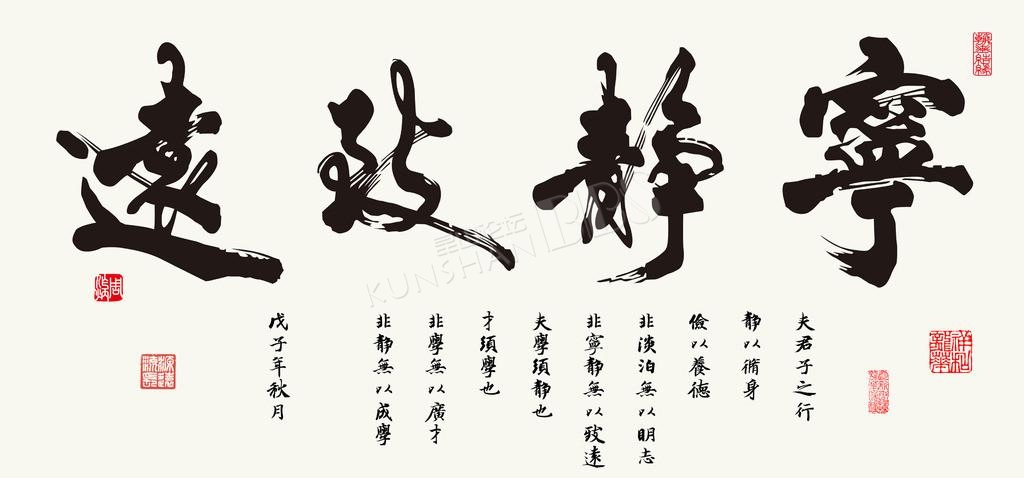 寧静致遠
翰墨結緣
夫君子之行
静以脩身
儉以養德
非淡泊無以明志
非寧静無以致遠
夫學須静也
才須學也
非學無以廣才
非静無以成學
戊子年秋月
KUNSHAN